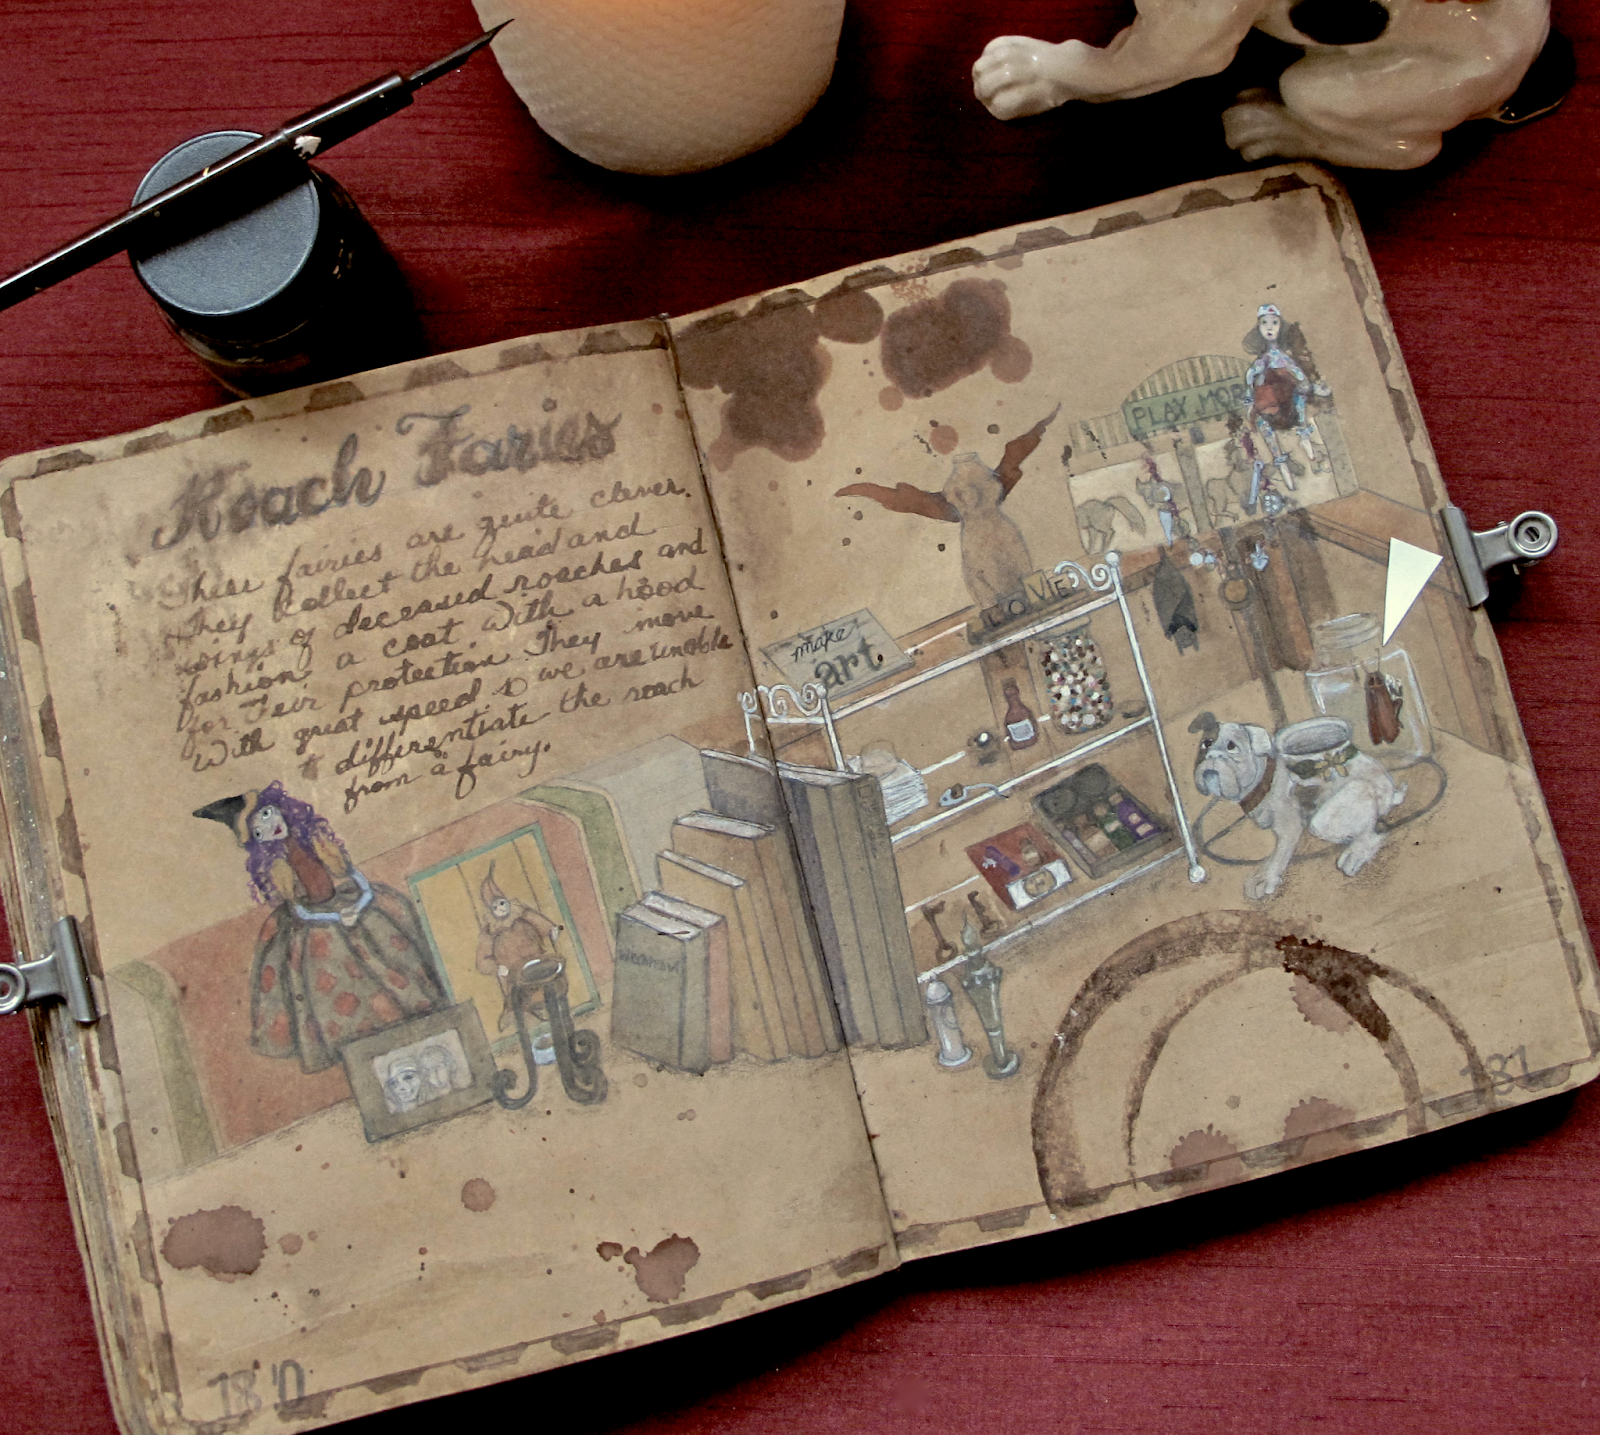 Roach Faries
These fairies are quite clever.
They collect the head and
wings of deceased roaches and
fashion a coat with a hood
for Teir protection. They move
with great speed so we are unable
to differentiate the roach
from a fairy.
make
art.
LOVE
PLAY MOR
180
181